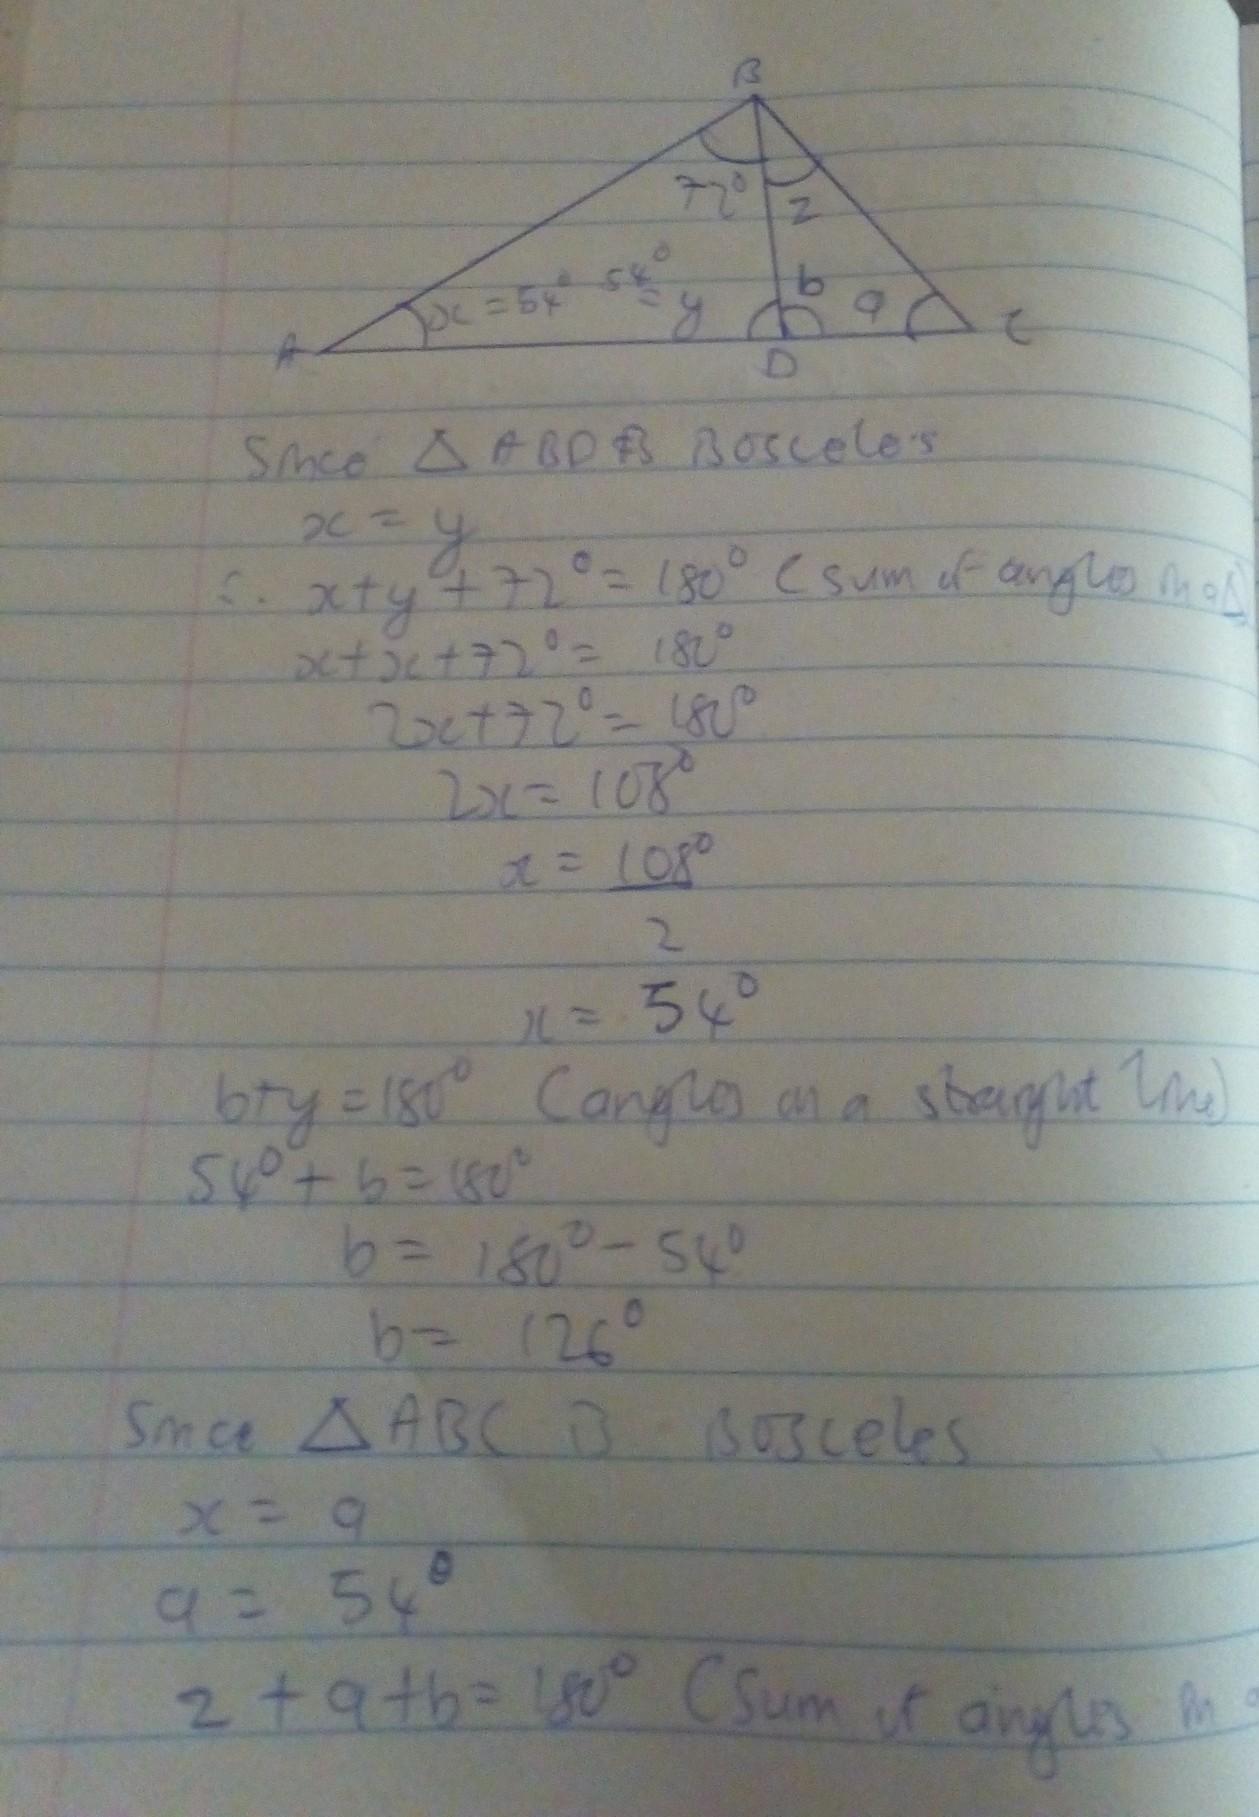 B
72° z
x = 54° 54° = y b a
A D C
Since △ ABD is isosceles
x = y
∴ x + y + 72° = 180° (sum of angles in a △
x + x + 72° = 180°
2x + 72° = 180°
2x = 108°
x = 108°
2
x = 54°
b + y = 180° (angles on a straight line)
54° + b = 180°
b = 180° - 54°
b = 126°
Since △ ABC is isosceles
x = a
a = 54°
z + a + b = 180° (sum of angles in